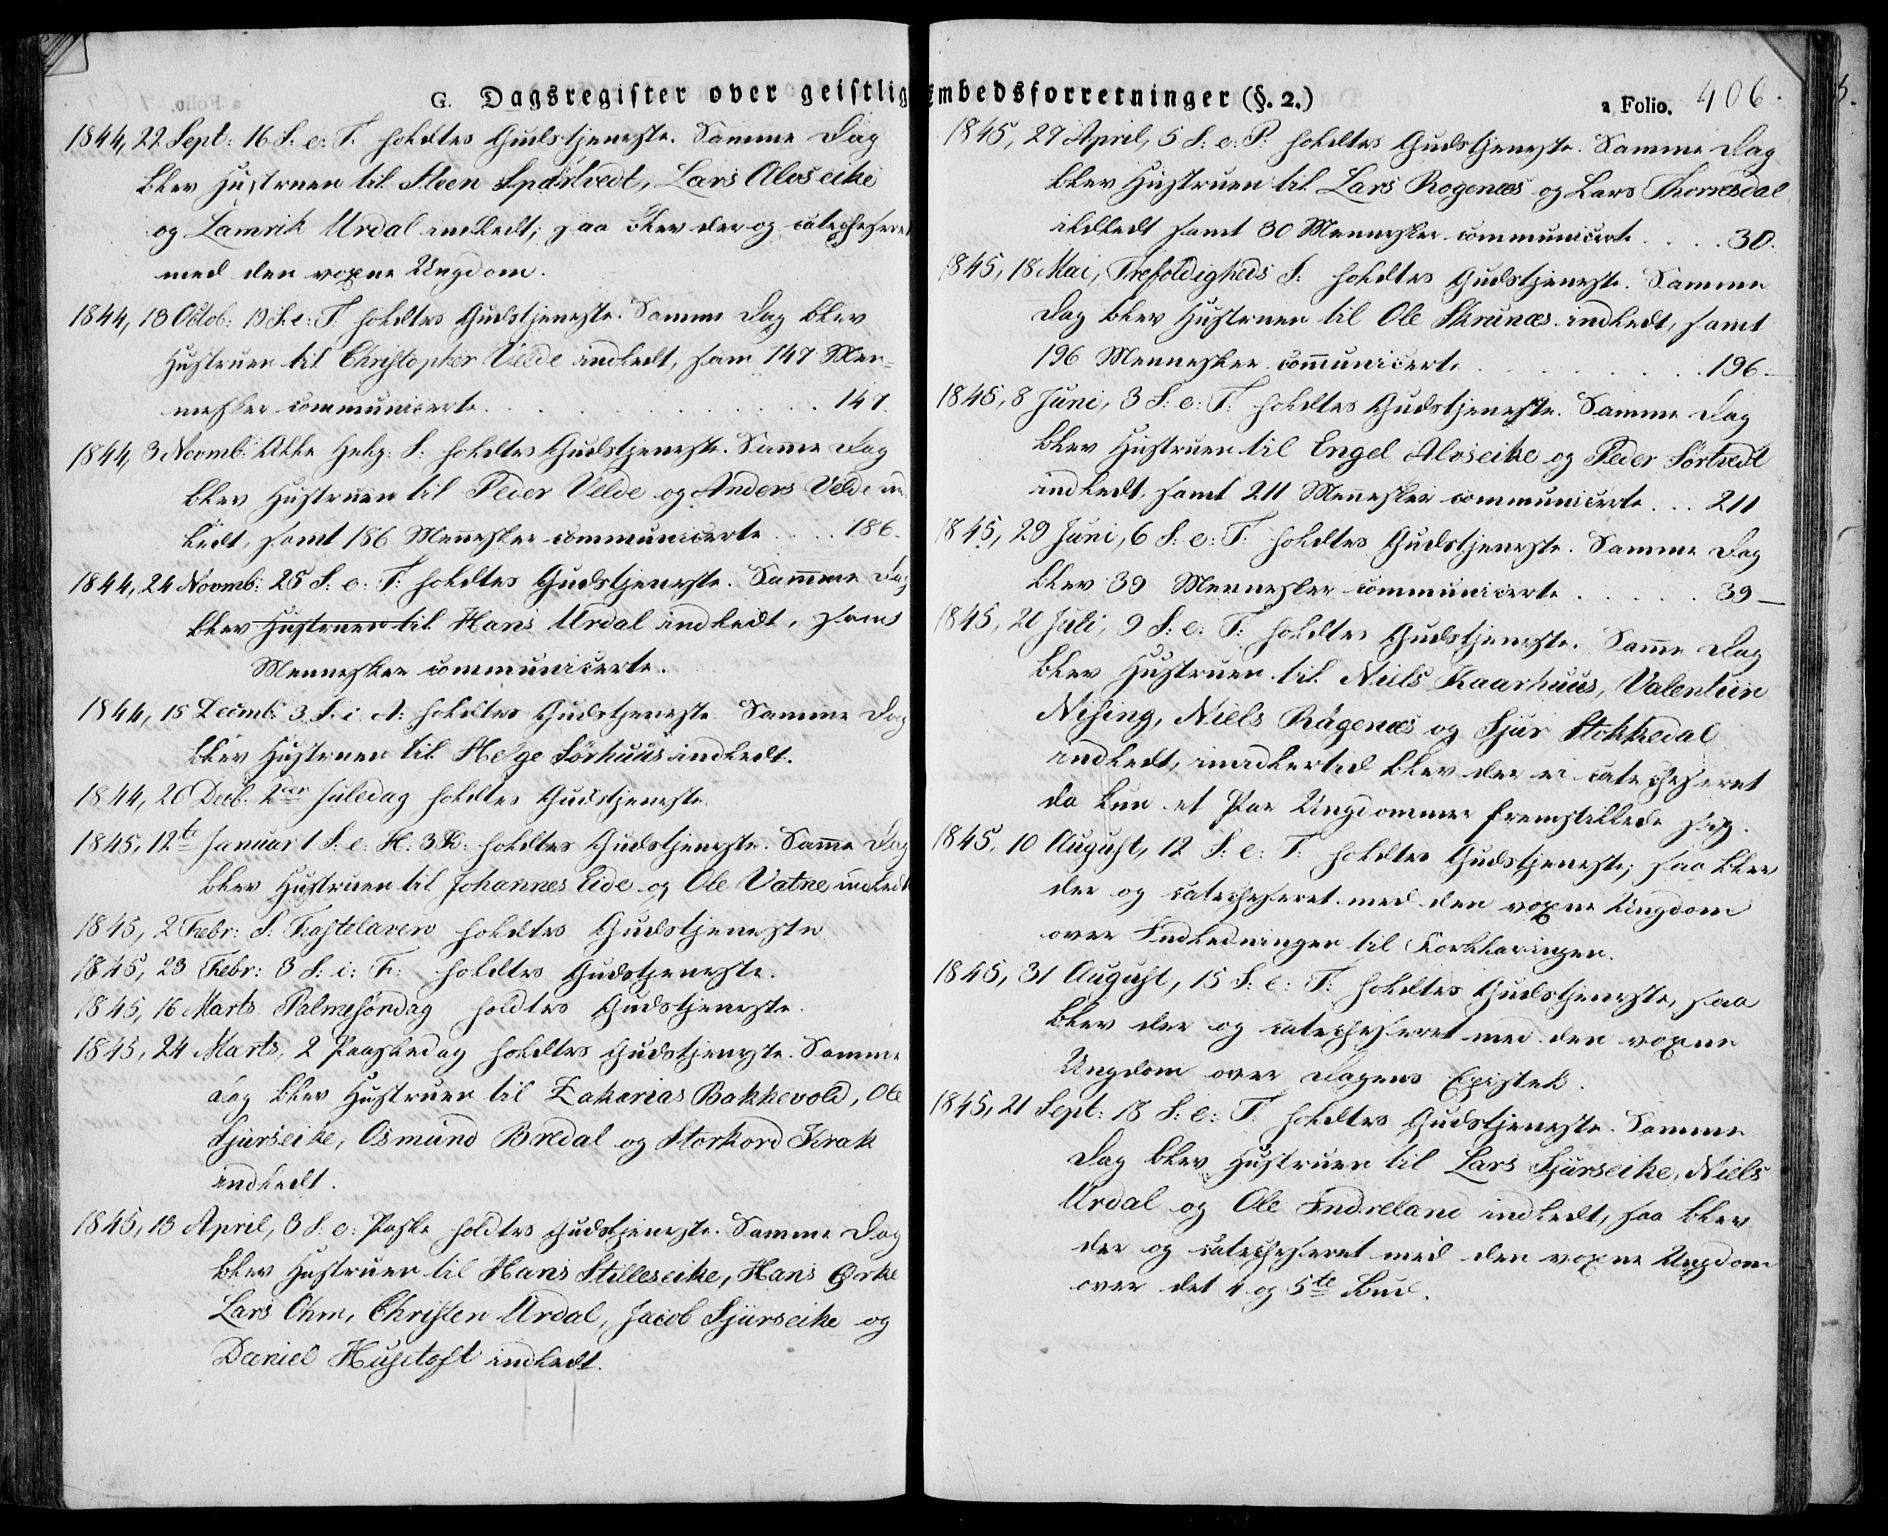 G. Dagsregister over geistlig Embedsforretninger (§. 2.)
a Folio. 406.
1844, 22 Sept: 16 S: e: T. holdtes Gudstjeneste. Samme Dag
blev Hustruen til Steen Spørtvedt, Lars Alvseike
og Lamrik Urdal indledt; saa blev der og catecheseret
med den voxne Ungdom.
1844, 13 Octob: 19 S: e: T: holdtes Gudstjeneste. Samme Dag blev
Hustruen til Christopher Velde indledt, sam 147 Men-
nesker communicerte. . . . 147
1844, 3 Novmb: Alle Helg: S: holdtes Gudstjeneste. Same Dag
blev Hustruen til Peder Velde og Anders Velde in
ledt, samt 186 Mennesker communicerte . . . 186.
1844, 24 Novmb: 25 S: e: T: holdtes Gudstjeneste. Samme Dag
blev Hustruen til Hans Urdal indledt, samt
Mennesker communicerte.
1844, 15 Decmb: 3 S: i: A: holdtes Gudstjeneste. Samme Dag
blev Hustruen til Helge Sørhuus indledt.
1844, 26 Decb. 2den Juledag holdtes Gudstjeneste.
1845, 12te Januar 1 S: e: H: 3K: holdtes Gudstjeneste. Same Dag
blev Hustruen til Johannes Eide og Ole Vatne indledt
1845, 2 Febr: S: Fastelaven holdtes Gudstjeneste
1845, 23 Febr: 3 S: i: F: holdtes Gudstjeneste.
1845, 16 Marts Palmesøndag holdtes Gudstjeneste.
1845, 24 Marts, 2 Paaskedag holdtes Gudstjeneste. Samme
dag blev Hustruen til Zakarias Bakkevold, Ole
Sjurseike, Osmund Bredal og Storkord Krak
indledt.
1845, 13 April, 3 S: e: Paske holdtes Gudstjeneste. Samme Dag
blev Hustruen til Hans Stilleseike, Hans Ørke
Lars Ohm, Christen Urdal, Jacob Sjurseike og
Daniel Husetoft indledt.
1845, 27 April, 5 S: e: P: holdtes Gudstjeneste. Samme Dag
blev Hustruen til Lars Rogenæs og Lars Thorresdal
indledt samt 30 Mennesker communicerte . . . . 30.
1845, 18 Mai, Trefoldigheds S: holdtes Gudstjeneste. Samme
Dag blev Hustruen til Ole Skrunæs indledt, samt
196 Mennesker communicerte . . . . 196.
1845, 8 Juni, 3 S: e: T: holdtes Gudstjeneste. Samme Dag
blev Hustruen til Engel Alvseike og Peder Sørtvedt
indledt, samt 211 Mennesker communicerte . . . 211
1845, 29 Juni, 6 S: e: T: holdtes Gudstjeneste. Samme Dag
blev 39 Mennesker communicerte . . . . . 39
1845, 20 Juli, 9 S: e: T: holdtes Gudstjeneste. Same Dag
blev Hustruen til Niels Kaarhuus, Valentiin
Nising, Niels Rågenæs og Sjur Stokkedal
indledt, imidlertid blev der ei catecheseret
da kun et Par Ungdommer fremstillede sig.
1845, 10 August, 12 S: e: T: holdtes Gudstjeneste; saa blev
der og catecheseret med den voxne Ungdom
over Indledningen til Forklaringen.
1845, 31 August, 15 S: e: T: holdtes Gudstjeneste, saa
blev der og catecheseret med den voxne
Ungdom over Dagens Epistel.
1845, 21 Sept: 18 S: e: T: holdtes Gudstjeneste. Samme
Dag blev Hustruen til Lars Sjurseike, Niels
Urdal og Ole Indreland indledt, saa blev
der og catecheseret med den voxne Ungdom
over det 4 og 5te Bud.